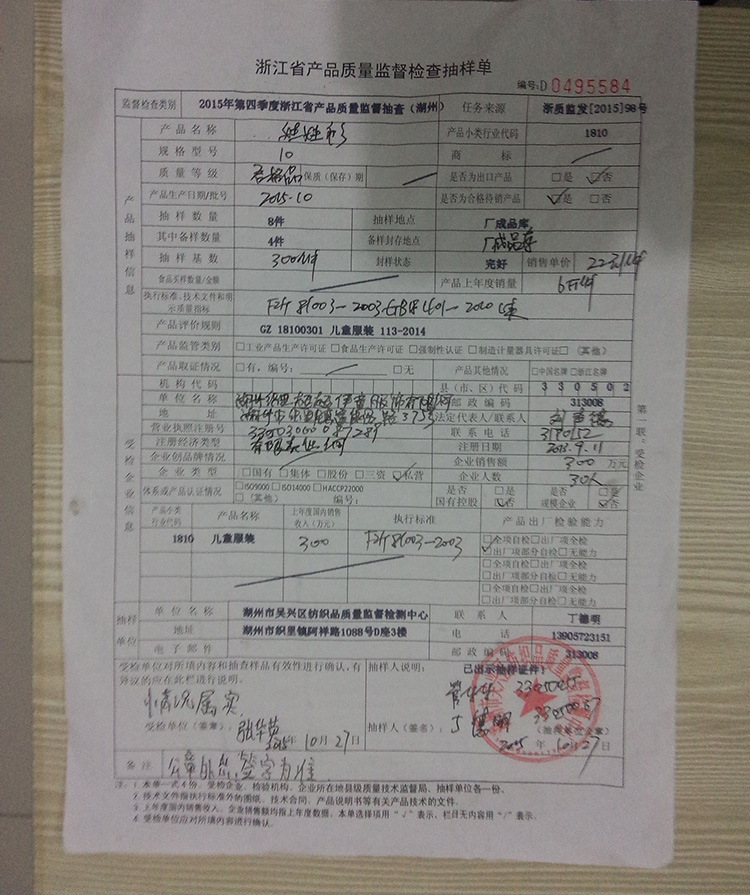 浙江省产品质量监督检查抽样单
编号:D 0495584
监督检查类别 2015年第四季度浙江省产品质量监督抽查（湖州） 任务来源 浙质监发[2015]98号
产品抽样信息
产品名称 娃娃衫 产品小类行业代码 1810
规格型号 10 商标
质量等级 合格品 保质（保存）期 是否为出口产品 □是 ☑否
产品生产日期/批号 2015.10 是否为合格待销产品 ☑是 □否
抽样数量 8件 抽样地点 厂成品库
其中备样数量 4件 备样封存地点 厂成品库
抽样基数 300件 封样状态 完好 销售单价 22元/件
食品买样数量/金额 产品上年度销量
执行标准、技术文件和明示质量指标 FZ/T 81003-2003
产品评价规则 GZ 18100301 儿童服装 113-2014
产品监管类别 □工业产品生产许可证 □食品生产许可证 □强制性认证 □制造计量器具许可证 □（其他）
产品取证情况 □有，编号： □无 产品其他情况 □中国名牌 □浙江名牌
受检企业信息
机构代码 县（市、区）代码 330502
单位名称 邮政编码 313008
地址 法定代表人/联系人
营业执照注册号 联系电话 3180152
注册经济类型 注册日期 2013.9.11
企业创品牌情况 企业销售额 300 万元
企业类型 □国有 □集体 □股份 □三资 ☑私营 企业人数 30人
体系或产品认证情况 □ISO9000 □ISO14000 □HACCP22000 □（其他） 编号： 是否国有控股 □是 ☑否 是否规模企业 □是 ☑否
产品小类行业代码 产品名称 上年度国内销售收入（万元） 执行标准 产品出厂检验能力
1810 儿童服装 300 FZ/T 81003-2003 □全项自检 □出厂项全检
☑出厂项部分自检 □无能力
□全项自检 □出厂项全检
□出厂项部分自检 □无能力
□全项自检 □出厂项全检
□出厂项部分自检 □无能力
抽样单位
单位名称 湖州市吴兴区纺织品质量监督检测中心 联系人 丁德明
地址 湖州市织里镇阿祥路1088号D座3楼 电话 13905723151
电子邮件 邮政编码 313008
受检单位对所填内容和抽查样品有效性进行确认，有异议的应在此栏进行说明。
情况属实
受检单位（签章）：
2015年10月27日
抽样人说明： 已出示抽样证件！
抽样人（签名）： （抽样单位公章）
2015年10月27日
备注 签字为准
注：1.本单一式4份，受检企业、检验机构、企业所在地县级质量技术监督局、抽样单位各一份。
2.技术文件指执行标准外的图纸、技术合同、产品说明书等有关产品技术的文件。
3.上年度国内销售收入、企业销售额均指上年度数据。本单选择项用“√”表示，栏目无内容用“/”表示。
4.受检单位应对所填内容进行确认。
第一联：受检企业